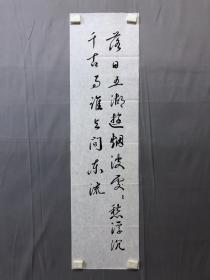 落日五湖遊烟波処々愁浮沉
千古事誰与问东流